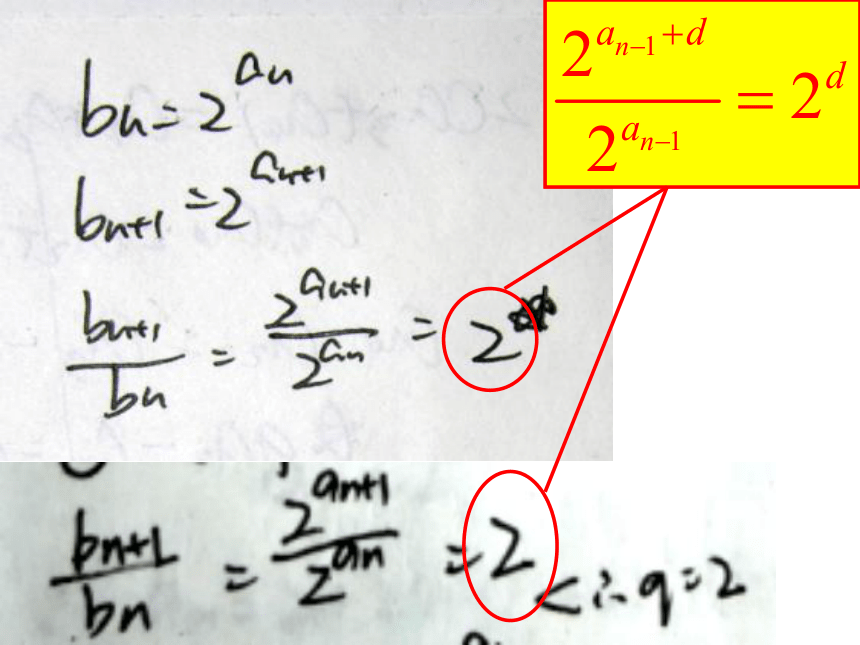 b_n = 2^{a_n}
b_{n+1} = 2^{a_{n+1}}
\frac{b_{n+1}}{b_n} = \frac{2^{a_{n+1}}}{2^{a_n}} = 2
\frac{2^{a_{n-1}+d}}{2^{a_{n-1}}} = 2^d
\frac{b_{n+1}}{b_n} = \frac{2^{a_{n+1}}}{2^{a_n}} = 2 < ∴ q = 2